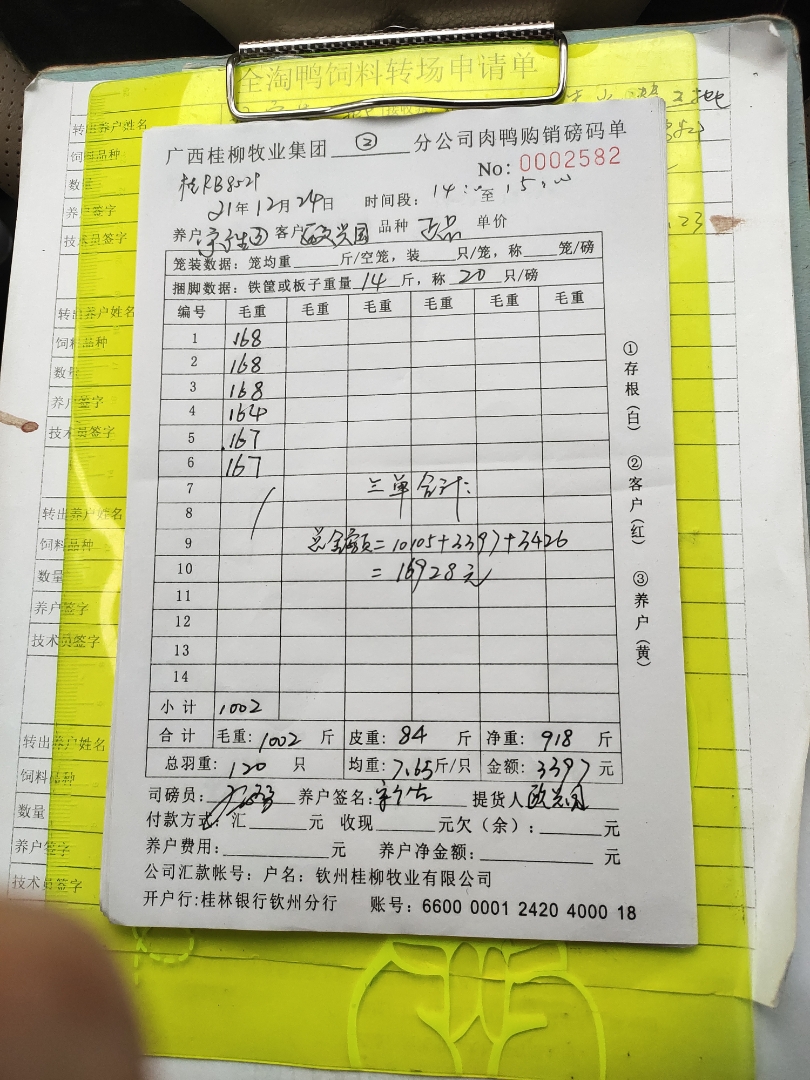 全淘鸭饲料转场申请单
转出养户姓名
饲料品种
数量
养户签字
技术员签字
23
转出养户姓名
饲料品种
数量
养户签字
技术员签字
转出养户姓名
饲料品种
数量
养户签字
技术员签字
转出养户姓名
饲料品种
数量
养户签字
技术员签字
广西桂柳牧业集团 ② 分公司肉鸭购销磅码单
No: 0002582
桂RB8521
21年12月24日 时间段: 14:00至15:00
养户 客户 欧兴国 品种 正品 单价
笼装数据: 笼均重 斤/空笼, 装 只/笼, 称 笼/磅
捆脚数据: 铁筐或板子重量 14 斤, 称 20 只/磅
编号 毛重 毛重 毛重 毛重 毛重 毛重
1 168
2 168
3 168
4 164
5 167
6 167
7 三单合计:
8
9 总金额=10105+3397+3426
10 =16928元
11
12
13
14
小计 1002
合计 毛重: 1002 斤 皮重: 84 斤 净重: 918 斤
总羽重: 120 只 均重: 7.65斤/只 金额: 3397元
司磅员: 养户签名: 提货人 欧兴国
付款方式: 汇 元 收现 元欠(余): 元
养户费用: 元 养户净金额: 元
公司汇款帐号: 户名: 钦州桂柳牧业有限公司
开户行:桂林银行钦州分行 账号: 6600 0001 2420 4000 18
①存根(白) ②客户(红) ③养户(黄)